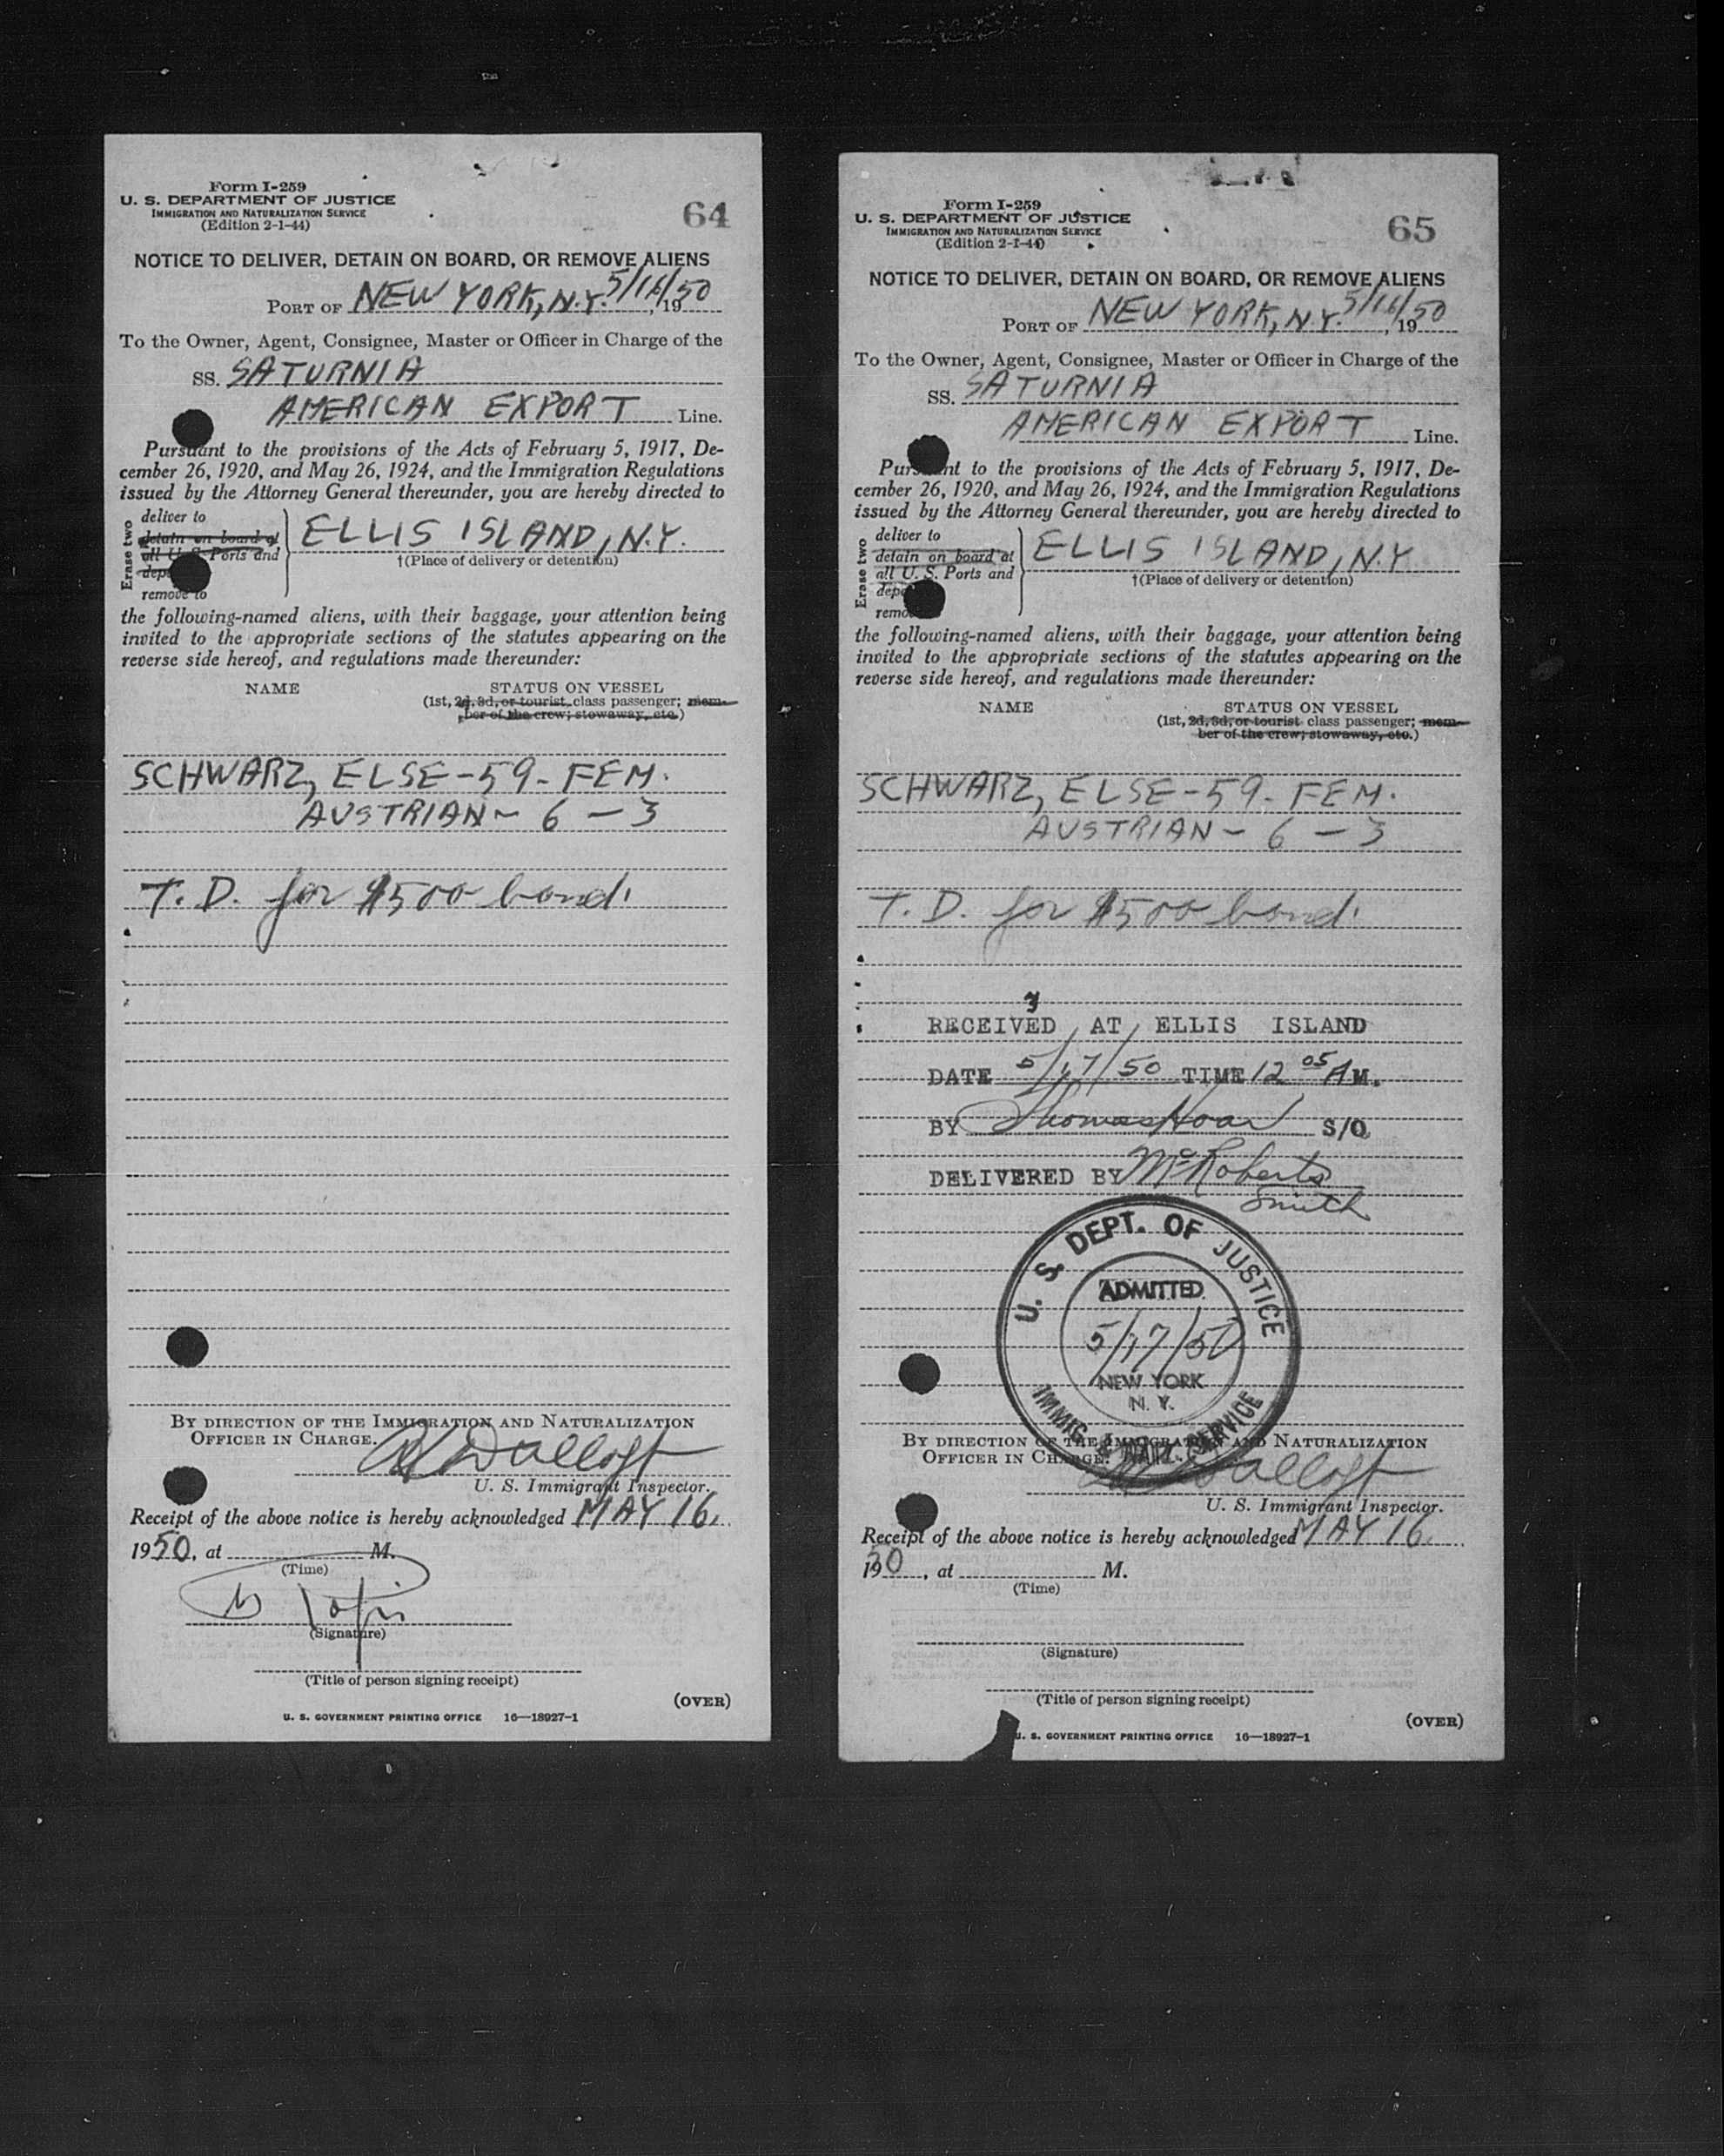 Form I-259
U. S. DEPARTMENT OF JUSTICE
IMMIGRATION AND NATURALIZATION SERVICE
(Edition 2-1-44)
64
NOTICE TO DELIVER, DETAIN ON BOARD, OR REMOVE ALIENS
PORT OF NEW YORK, N.Y. 5/16/50, 19
To the Owner, Agent, Consignee, Master or Officer in Charge of the
SS. SATURNIA
AMERICAN EXPORT Line.
Pursuant to the provisions of the Acts of February 5, 1917, De-
cember 26, 1920, and May 26, 1924, and the Immigration Regulations
issued by the Attorney General thereunder, you are hereby directed to
Erase two
deliver to
detain on board at
all U. S. Ports and
remove to
ELLIS ISLAND, N.Y.
†(Place of delivery or detention)
the following-named aliens, with their baggage, your attention being
invited to the appropriate sections of the statutes appearing on the
reverse side hereof, and regulations made thereunder:
NAME STATUS ON VESSEL
(1st, 2d, 3d, or tourist class passenger; mem-
ber of the crew; stowaway, etc.)
SCHWARZ, ELSE-59- FEM.
AUSTRIAN- 6 - 3
T. D. for $500 bond.
BY DIRECTION OF THE IMMIGRATION AND NATURALIZATION
OFFICER IN CHARGE.
U. S. Immigrant Inspector.
Receipt of the above notice is hereby acknowledged MAY 16,
1950, at M.
(Time)
(Signature)
(Title of person signing receipt)
(OVER)
U. S. GOVERNMENT PRINTING OFFICE 16—18927-1
Form I-259
U. S. DEPARTMENT OF JUSTICE
IMMIGRATION AND NATURALIZATION SERVICE
(Edition 2-1-44)
65
NOTICE TO DELIVER, DETAIN ON BOARD, OR REMOVE ALIENS
PORT OF NEW YORK, N.Y. 5/16/50, 19
To the Owner, Agent, Consignee, Master or Officer in Charge of the
SS. SATURNIA
AMERICAN EXPORT Line.
Pursuant to the provisions of the Acts of February 5, 1917, De-
cember 26, 1920, and May 26, 1924, and the Immigration Regulations
issued by the Attorney General thereunder, you are hereby directed to
Erase two
deliver to
detain on board at
all U. S. Ports and
ELLIS ISLAND, N.Y.
†(Place of delivery or detention)
the following-named aliens, with their baggage, your attention being
invited to the appropriate sections of the statutes appearing on the
reverse side hereof, and regulations made thereunder:
NAME STATUS ON VESSEL
(1st, 2d, 3d, or tourist class passenger; mem-
ber of the crew; stowaway, etc.)
SCHWARZ, ELSE-59- FEM.
AUSTRIAN- 6 - 3
T. D. for $500 bond.
RECEIVED AT ELLIS ISLAND
DATE 5/17/50 TIME 12 05 AM.
BY Thomas Hoar S/O
DELIVERED BY McRoberts
Smith
U. S. DEPT. OF JUSTICE
ADMITTED
5/17/50
NEW YORK
N. Y.
IMMIG. & NAT. SERVICE
BY DIRECTION OF THE IMMIGRATION AND NATURALIZATION
OFFICER IN CHARGE.
U. S. Immigrant Inspector.
Receipt of the above notice is hereby acknowledged MAY 16,
1950, at M.
(Time)
(Signature)
(Title of person signing receipt)
(OVER)
U. S. GOVERNMENT PRINTING OFFICE 16—18927-1